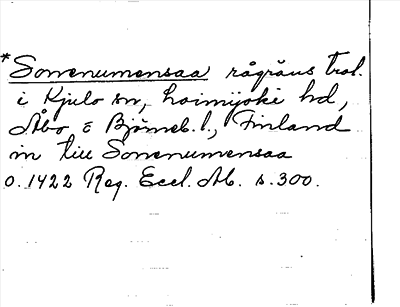 *Sonnenumensaa rågräns trol.
i Kjulo sn, Loimijoki hd,
Åbo & Björneb. l., Finland
in till Sonnenumensaa
o. 1422 Reg. Eccl. Ab. s. 300.